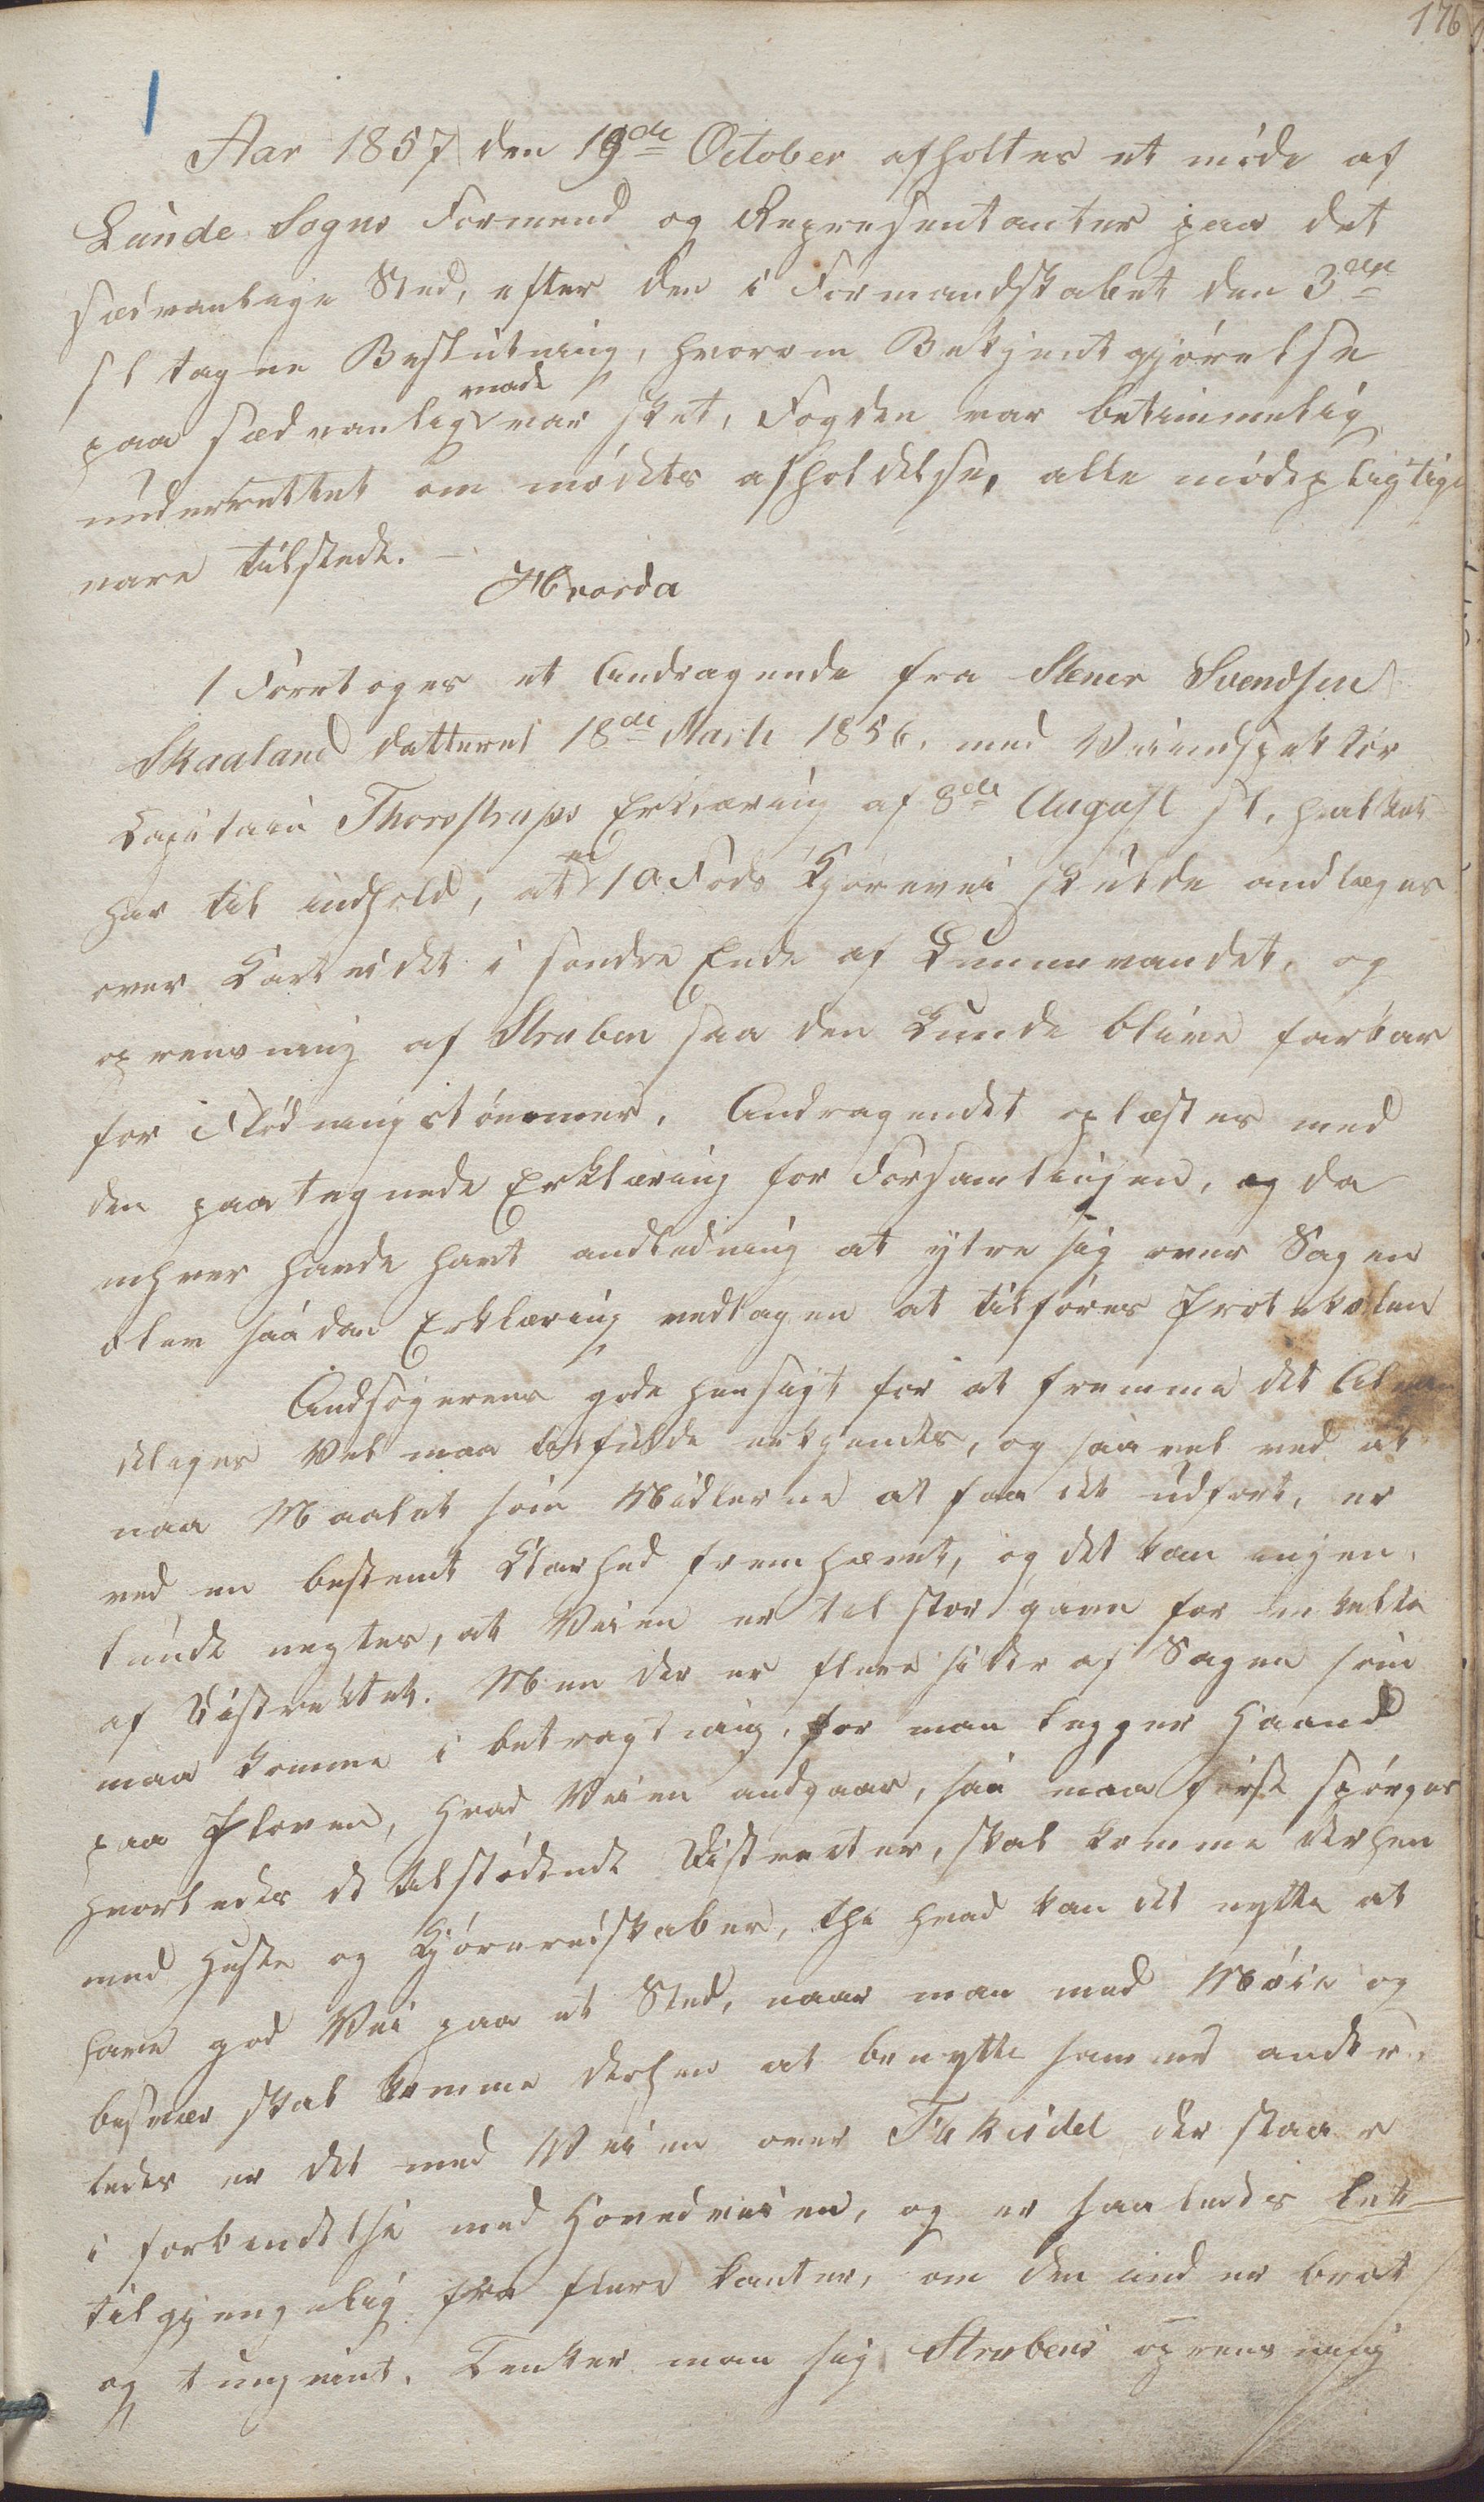 176
Aar 1857 den 19de October afholtes et møde af
Lunde Sogns Formend og Representanter paa det
sædvanlige Sted, efter den i Formandskabet den 3die
sl tagne Beslutning, hvorom Bekjentgjørelse
paa sædvanlig maade var sket, Fogden var betimmelig
underrettet om mødets afholdelse, alle mødepligtige
vare tilstede. —
Hvorda
1 Foretoges et Andragende fra Stener Svendsen
Skaaland datteret 18de Marts 1856. med Veiinspektør
Capitain Thorstrups Erklæring af 8de August sl, hvilket
har til indhold, at en 10 Fods Kjørevei skulde andlægges
over Corteidet i søndre Ende af Lunnevandet, og
oprensning af Struben saa den kunde blive farbar
for Flødningstømmer. Andragendet oplæstes med
den paategnede Erklæring for Forsamlingen, og da
enhver havde havt andledning at ytre sig over Sagen
blev saadan Erklæring vedtagen at tilføres Protokolen
Andsøgerens gode hensigt for at fremme det Almin
deliges Vel maa tilfulde erkjendes, og saavel ved at
naa Maalet som Midlerne at faa det udført, er
ved en bestemt Klarhed fremhævet, og det kan ingen,
lunde negtes, at Veien er til stor gavn for enkelte
af Distriktet. Men der er flere sider af Sagen som
maa komme i betragtning, før man legger Haand
paa Ploven, Hvad Veien andgaar, saa maa først spørges
hvorledes de tilstødende Districter, skal komme derhen
med Heste og Kjøreredskaber, thi hvad kan det nytte at
have god Vei paa et Sted, naar man med Møie og
besvær skal komme derhen at benytte samme ander,
ledes er det med Veien over Eideidet der staar
i forbindelse med Hovedveien, og er saaledes let
tilgjengelig fra flere kanter, om den end er brat
og tungvint. Tenker man sig Strubens oprensning